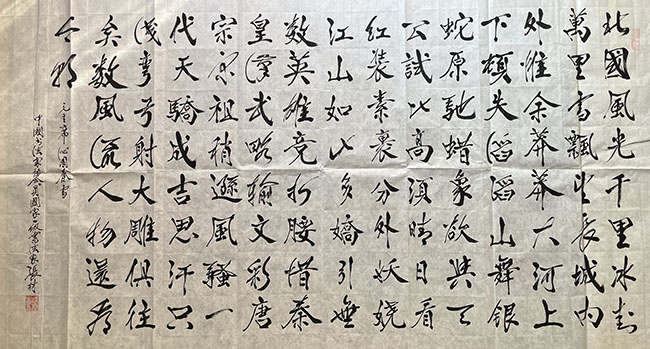 北國風光千里冰封
萬里雪飄望長城內
外惟余莽莽大河上
下頓失滔滔山舞銀
蛇原馳蜡象欲與天
公試比高須晴日看
紅裝素裹分外妖嬈
江山如此多嬌引無
數英雄竞折腰惜秦
皇漢武略輸文彩唐
宗宋祖稍遜風騷一
代天驕成吉思汗只
識彎弓射大雕俱往
矣數風流人物還看
今朝
毛主席沁園春雪
中國書法家協會員國家一級書法家張